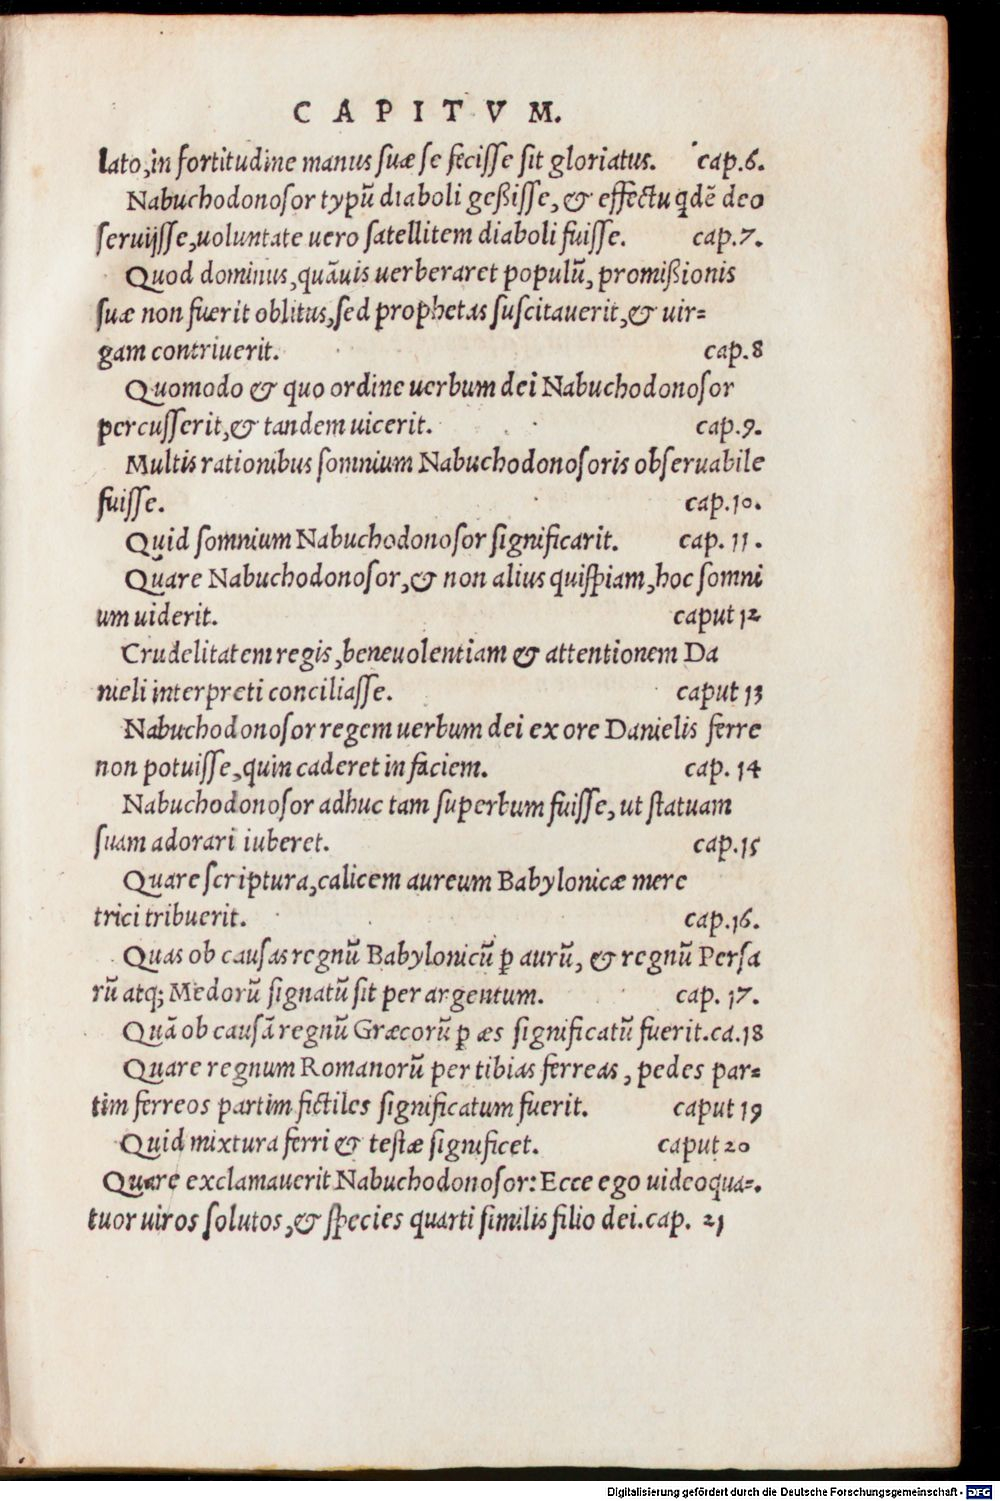 CAPITVM.
lato, in fortitudine manus suæ se fecisse sit gloriatus. cap.6.
Nabuchodonosor typū diaboli geßisse, & effectu qdē deo
seruijsse, uoluntate uero satellitem diaboli fuisse. cap.7.
Quod dominus, quāuis uerberaret populū, promißionis
suæ non fuerit oblitus, sed prophetas suscitauerit, & uir=
gam contriuerit. cap.8
Quomodo & quo ordine uerbum dei Nabuchodonosor
percusserit, & tandem uicerit. cap.9.
Multis rationibus somnium Nabuchodonosoris obseruabile
fuisse. cap.10.
Quid somnium Nabuchodonosor significarit. cap. 11.
Quare Nabuchodonosor, & non alius quispiam, hoc somni
um uiderit. caput 12
Crudelitatem regis, beneuolentiam & attentionem Da
nieli interpreti conciliasse. caput 13
Nabuchodonosor regem uerbum dei ex ore Danielis ferre
non potuisse, quin caderet in faciem. cap. 14
Nabuchodonosor adhuc tam superbum fuisse, ut statuam
suam adorari iuberet. cap.15
Quare scriptura, calicem aureum Babylonicæ mere
trici tribuerit. cap.16.
Quas ob causas regnū Babylonicū ꝑ aurū, & regnū Persa
rū atq; Medorū signatū sit per argentum. cap. 17.
Quā ob causā regnū Græcorū ꝑ æs significatū fuerit. ca.18
Quare regnum Romanorū per tibias ferreas, pedes par=
tim ferreos partim fictiles significatum fuerit. caput 19
Quid mixtura ferri & testæ significet. caput 20
Quare exclamauerit Nabuchodonosor: Ecce ego uideo qua=.
tuor uiros solutos, & species quarti similis filio dei. cap. 21
Digitalisierung gefördert durch die Deutsche Forschungsgemeinschaft - DFG